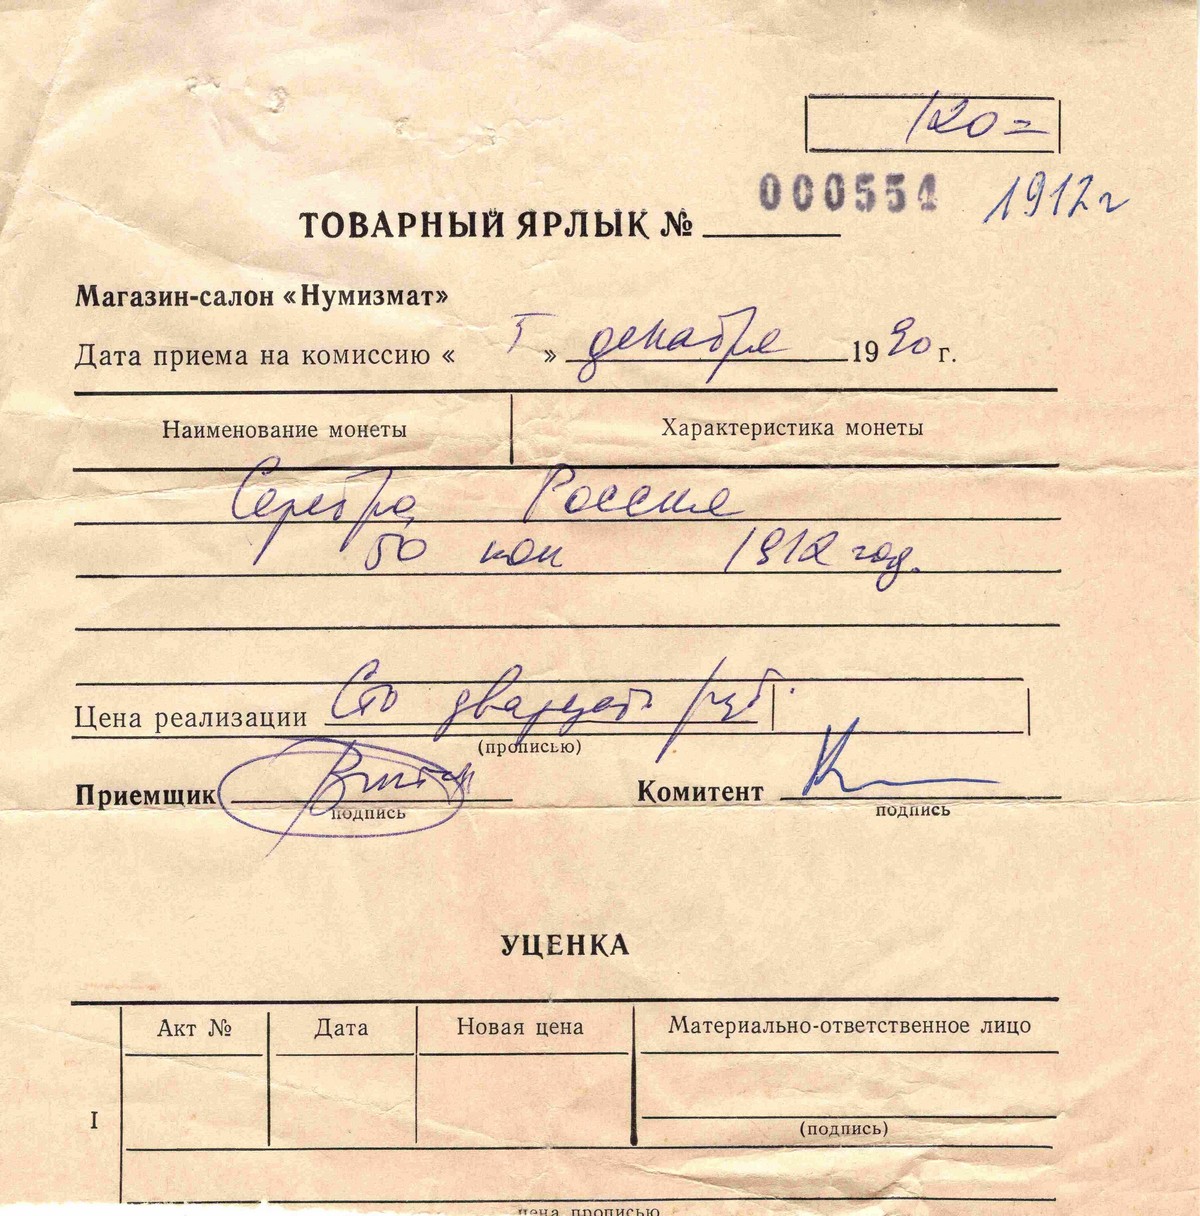 120=
000554 1912г
ТОВАРНЫЙ ЯРЛЫК №
Магазин-салон «Нумизмат»
Дата приема на комиссию « I » декабря 1990 г.
Наименование монеты Характеристика монеты
Серебро Россия
50 коп 1912 год.
Цена реализации Сто двадцать руб.
(прописью)
Приемщик Комитент
подпись подпись
УЦЕНКА
Акт № Дата Новая цена Материально-ответственное лицо
I
(подпись)
цена прописью